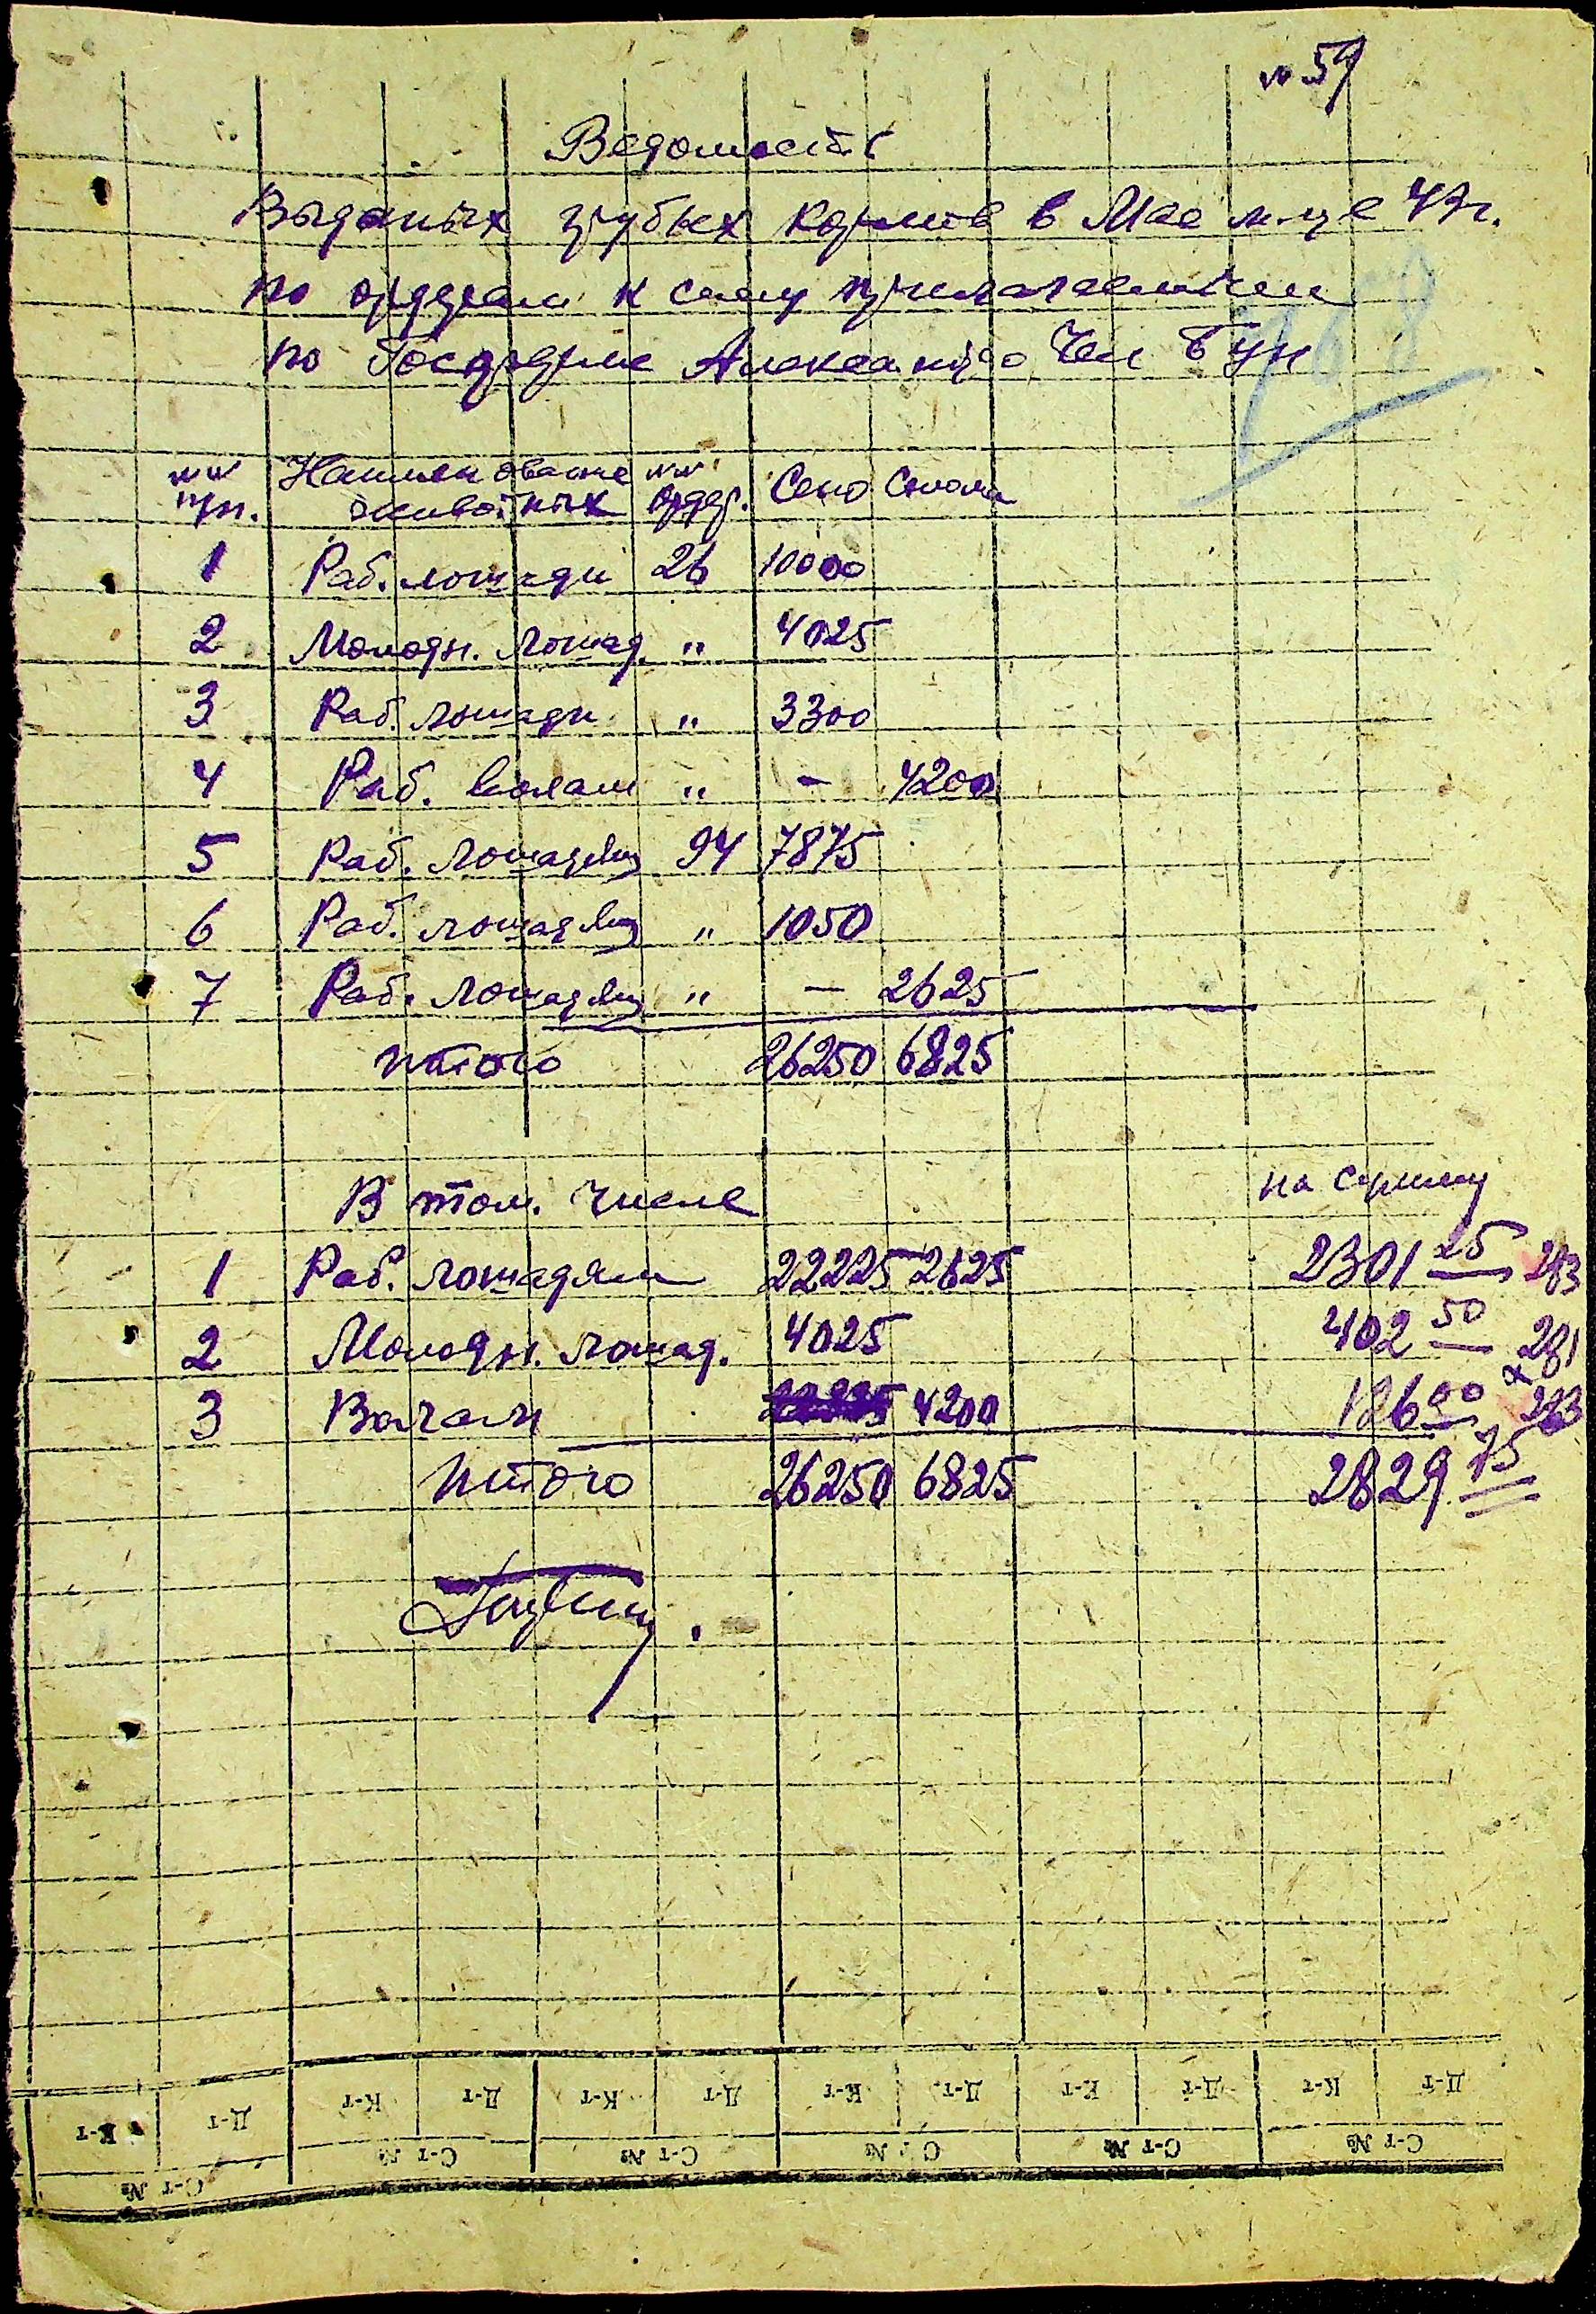 № 59
Ведомость
Выданых грубых кормов в Мае м-це 43 г.
по ордерам к сему прилагаемыми
по Госдворме Александро Чем Бун
№№ п/п. Наименование животных №№ ордер. Сено Солома
1 Раб. лошади 26 10000
2 Молодн. лошад. " 4025
3 Раб. лошади " 3300
4 Раб. волам " - 4200
5 Раб. лошадям 94 7875
6 Раб. лошадям " 1050
7 Раб. лошадям " - 2625
итого 26250 6825
В том. числе на сумму
1 Раб. лошадям 22225 2625 2301 25 283
2 Молодн. лошад. 4025 402 50 281
3 Волам 4200 126 00 283
Итого 26250 6825 2829 75
К-т Д-т К-т Д-т К-т Д-т К-т Д-т К-т Д-т К-т Д-т
С-т № С-т № С-т № С-т № С-т № С-т №